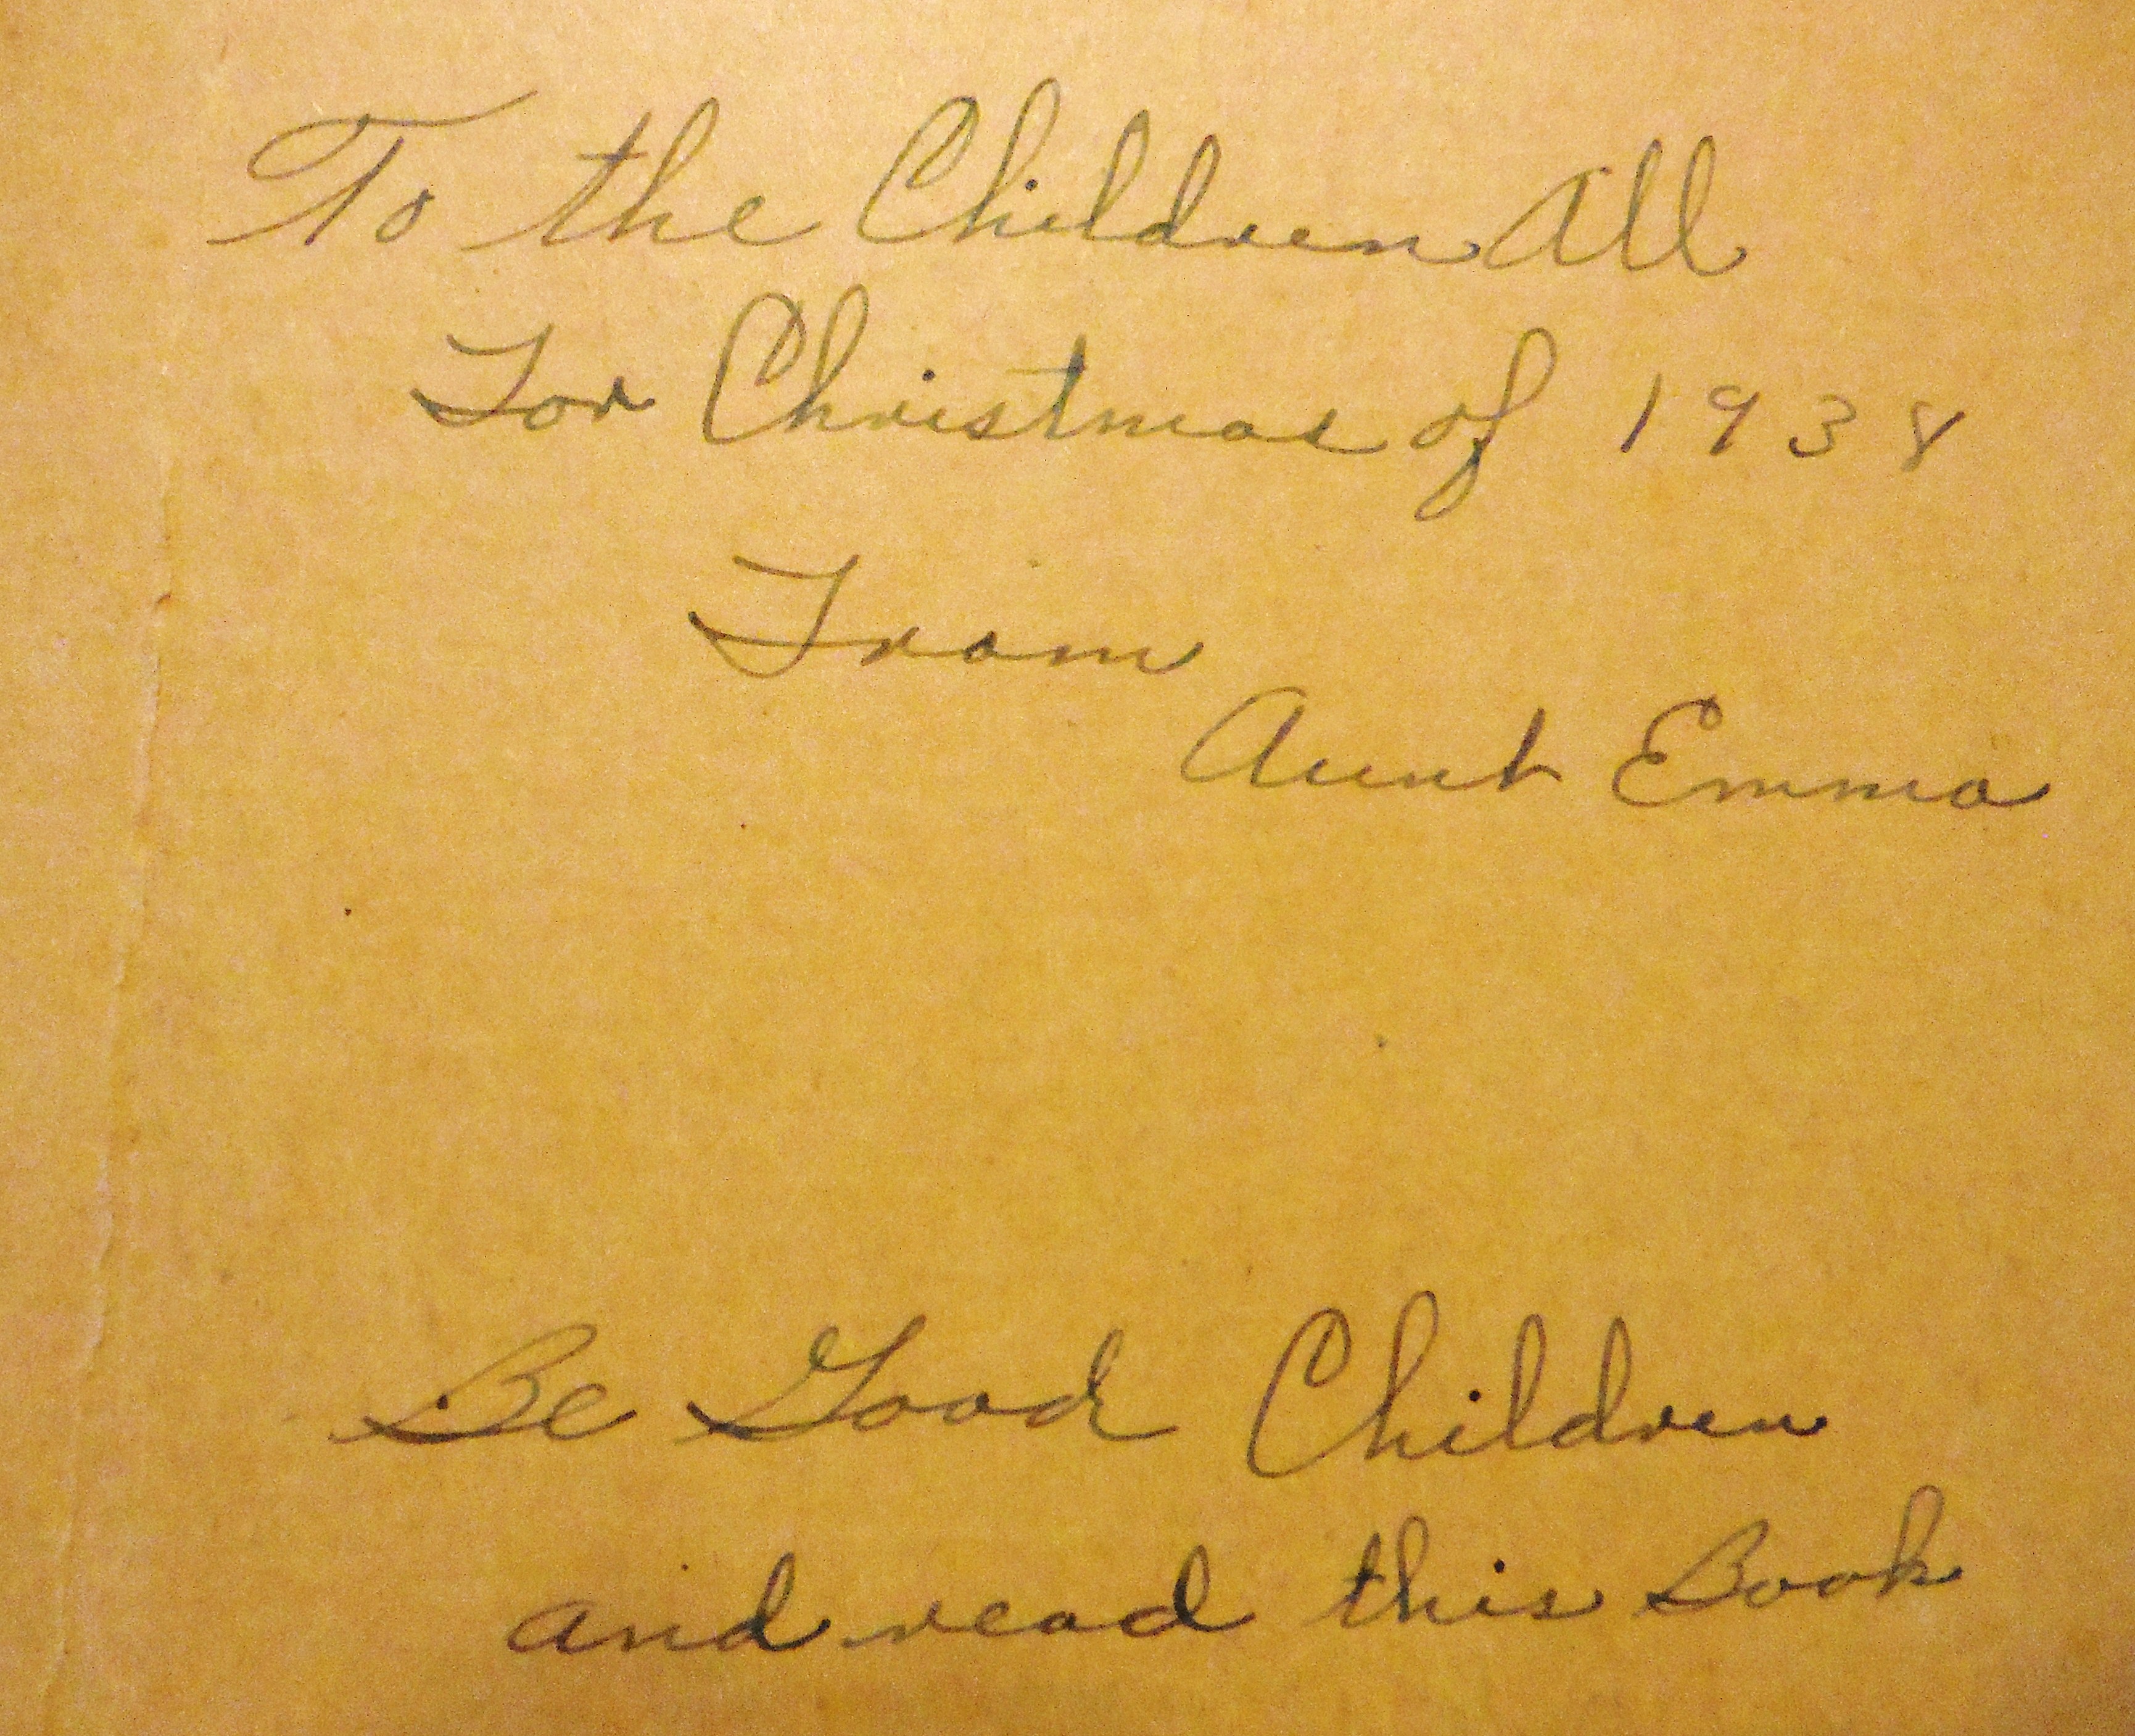 To the Children All
For Christmas of 1938
From
Aunt Emma
Be Good Children
and read this Book